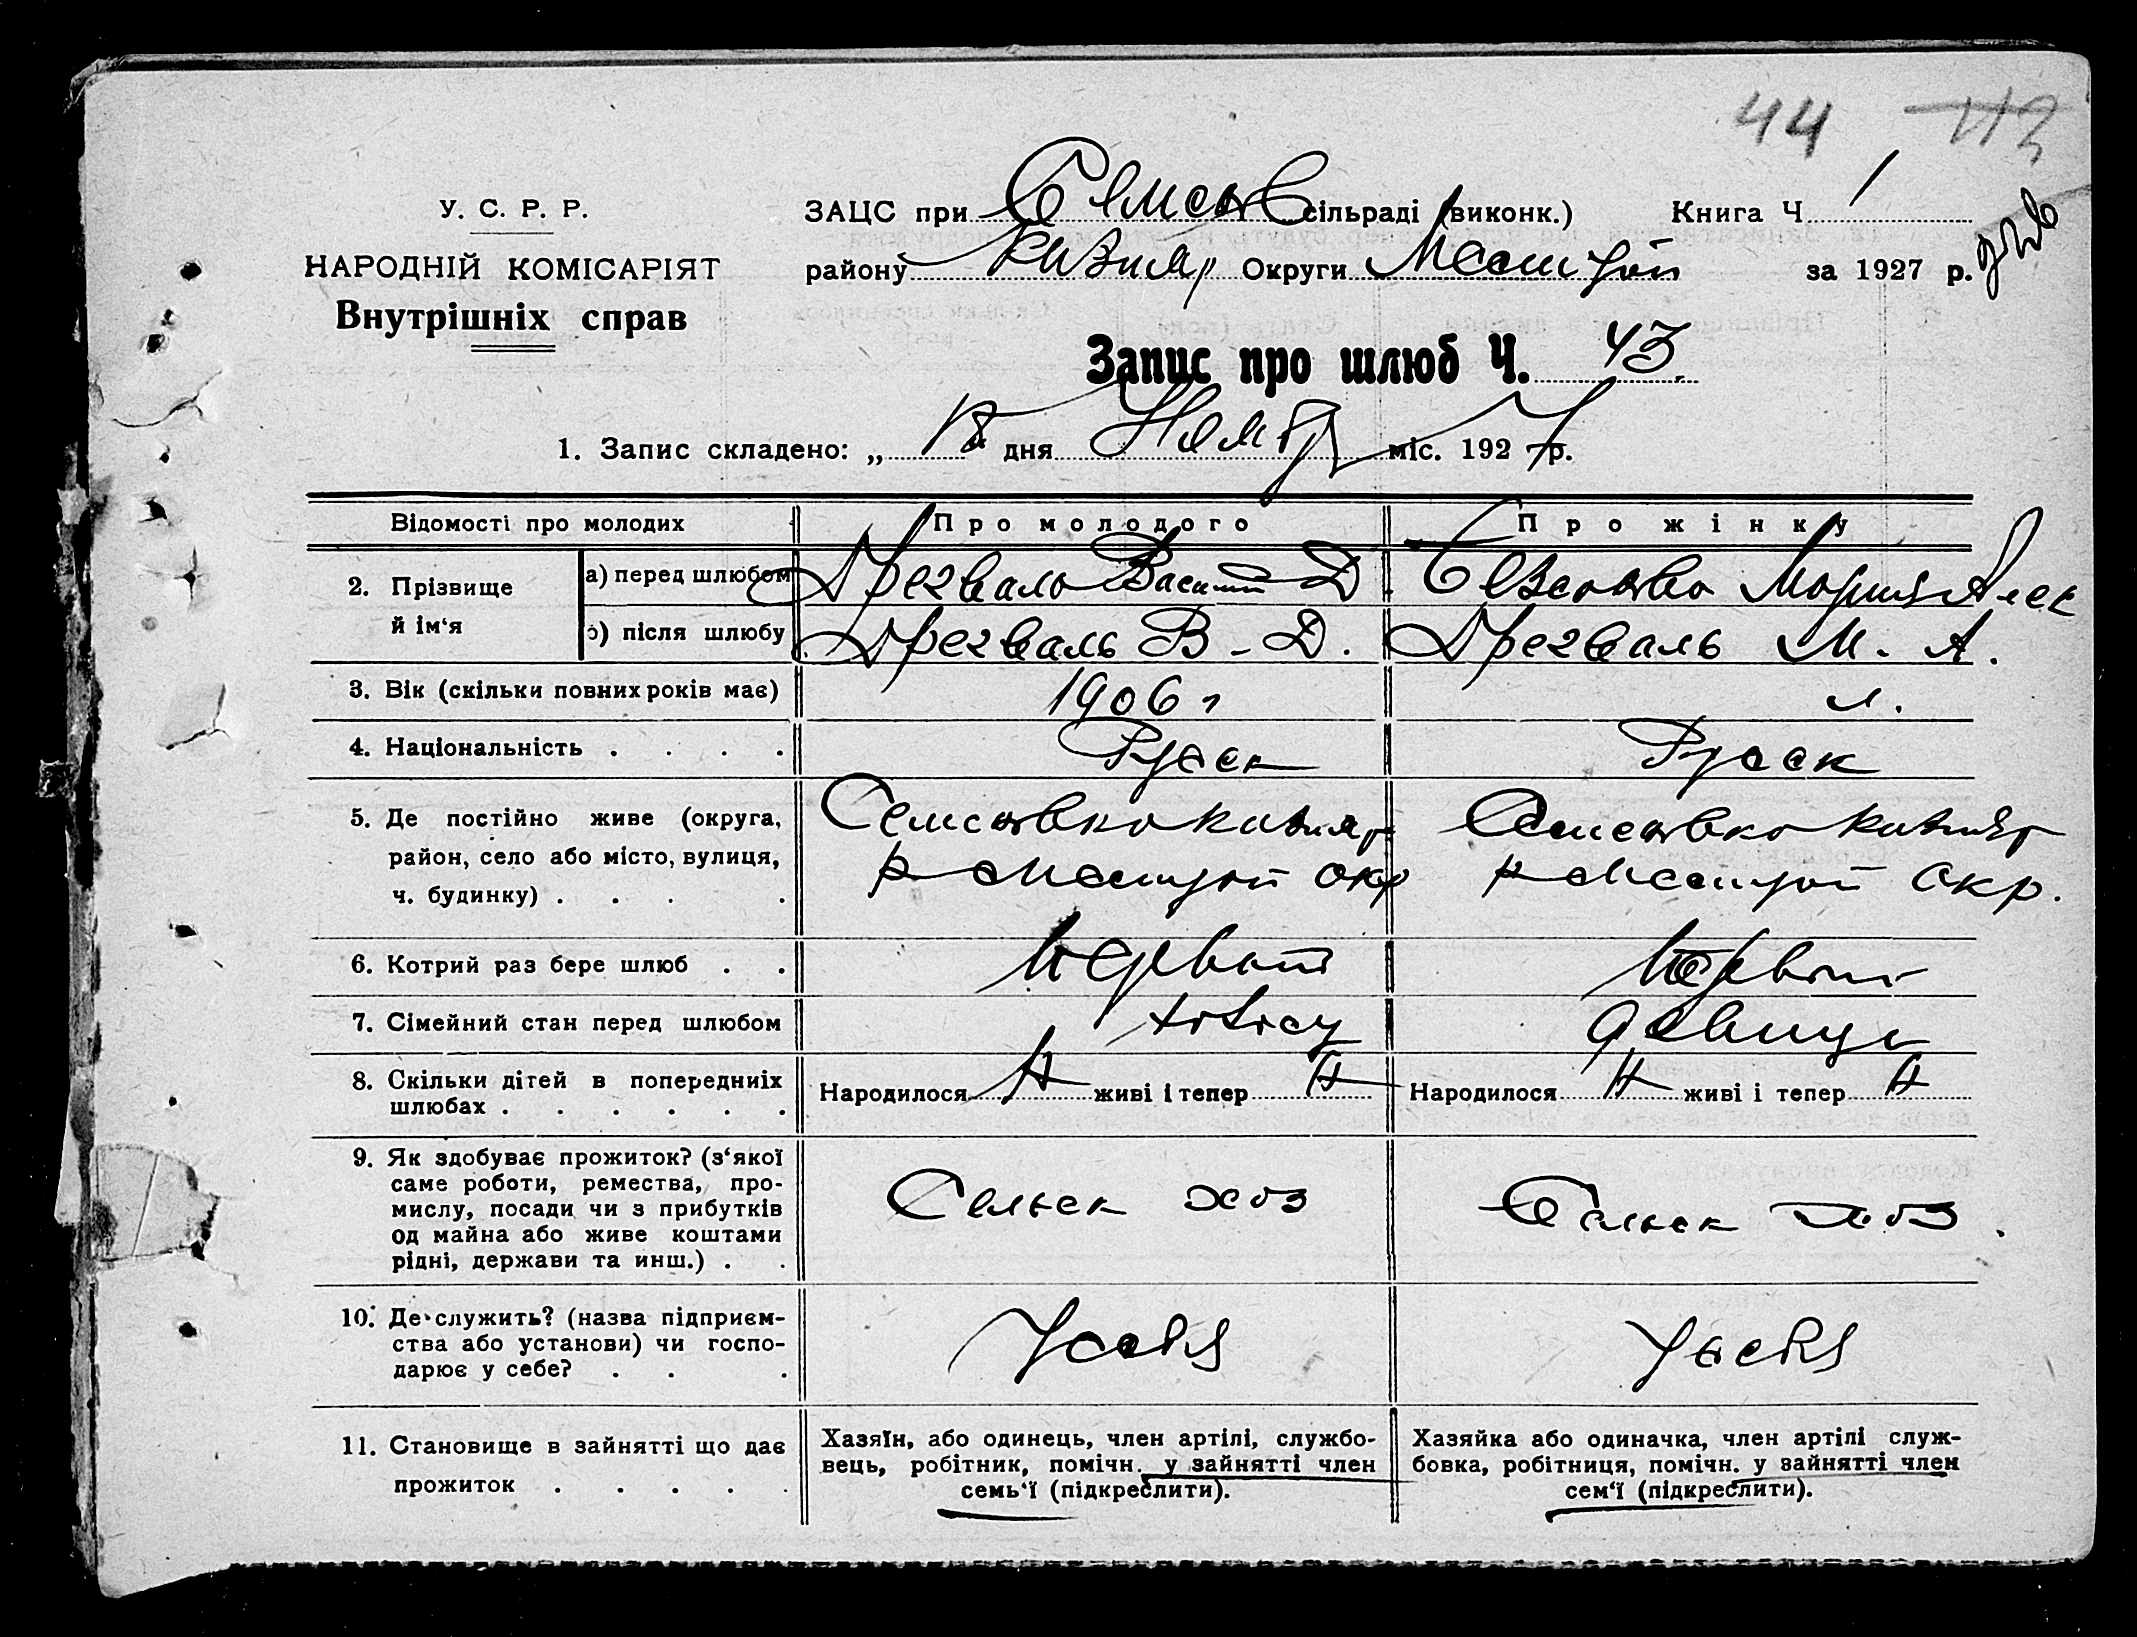 44 112
У. С. Р. Р.
НАРОДНІЙ КОМІСАРІЯТ
Внутрішніх справ
ЗАЦС при Семсотв сільраді (виконк.) Книга Ч 1
району Кизияр Округи за 1927 р.
Запис про шлюб Ч. 43
1. Запис складено: „ 18 дня Наябр міс. 1927 р.
Відомості про молодих Про молодого Про жінку
2. Прізвище й ім‘я
а) перед шлюбом Дрегваль Василий Д. Мария Алек
б) після шлюбу Дрегваль В - Д. Дрегваль М. А.
3. Вік (скільки повних років має) 1906 г
4. Національність . . . . Русск Русск
5. Де постійно живе (округа, район, село або місто, вулиця, ч. будинку) . . . .
Семсотвка Кизияр Семсотвка Кизияр
р окр р Окр.
6. Котрий раз бере шлюб . . Первый Первый
7. Сімейний стан перед шлюбом холост девица
8. Скільки дітей в попередниіх шлюбах . . . . . . Народилося Н живі і тепер Н Народилося Н живі і тепер Н
9. Як здобуває прожиток? (з‘якої саме роботи, ремества, промислу, посади чи з прибутків од майна або живе коштами рідні, держави та инш.) . .
Сельск хоз Сельск хоз.
10. Де служить? (назва підприємства або установи) чи господарює у себе? . . .
У себя У себя
11. Становище в зайнятті що дає прожиток . . . . .
Хазяїн, або одинець, член артілі, службовець, робітник, помічн. у зайнятті член семь‘ї (підкреслити).
Хазяйка або одиначка, член артілі службовка, робітниця, помічн. у зайнятті член сем‘ї (підкреслити).